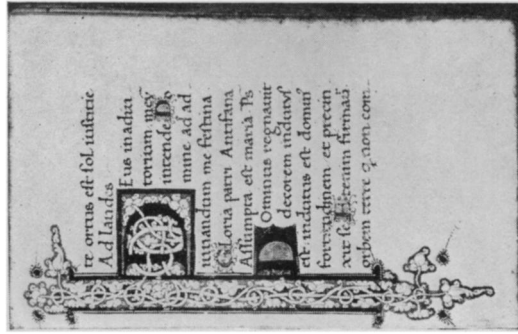 te ortus est sol iustitie
Ad laudes
Deus in adiu
torium mey
intende. Do
mine ad ad
iuuandum me festina
Gloria patri Antifana
Assumpta est maria Ps
Dominus regnauit
decorem indutus
est indutus est domin
fortitudinem et precin
xit se. Etenim firmaui
orbem terre q non com